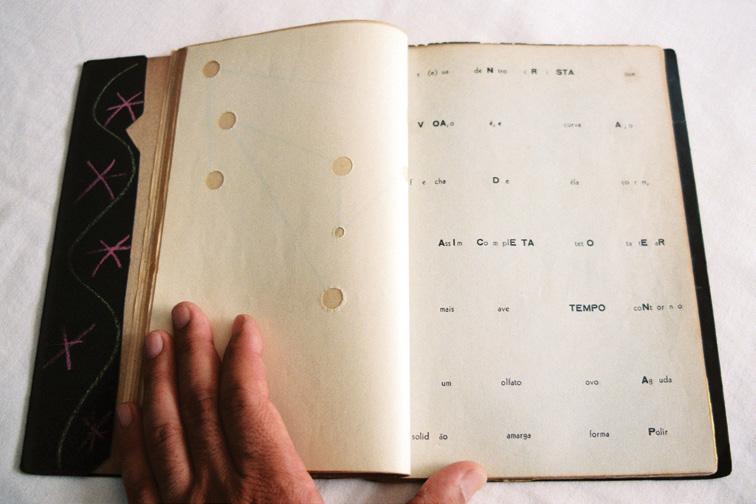 (e) ue de N tro R STA
V OA, o é, e curva A , o
f e cha D e éla co r n,
Ass I m Co m pl E TA tet O ta t E a R
mais ave TEMPO co N t or n o
um olfato ovo A g uda
solid ão amarga forma P olir